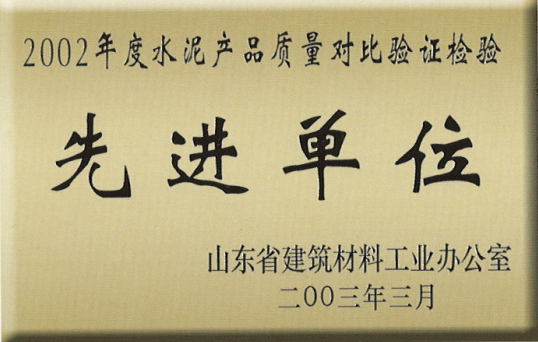 2002年度水泥产品质量对比验证检验
先进单位
山东省建筑材料工业办公室
二OO三年三月